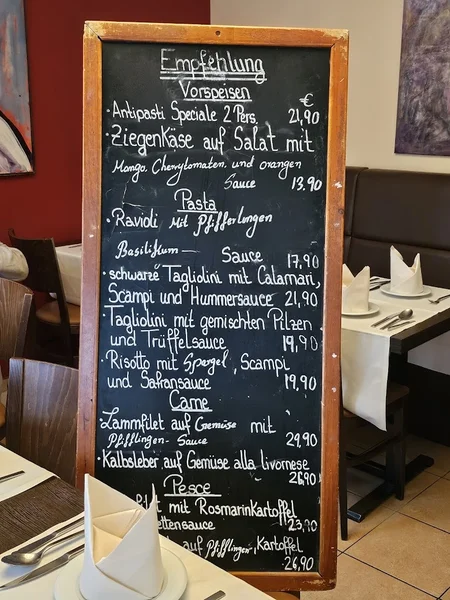 Empfehlung
Vorspeisen
€
·Antipasti Speciale 2 Pers. 21,90
·Ziegenkäse auf Salat mit
Mango, Cherrytomaten, und orangen
Sauce 13,90
Pasta
·Ravioli mit Pfifferlingen
Basilikum- Sauce 17,90
·schwarze Tagliolini mit Calamari,
Scampi und Hummersauce 21,90
·Tagliolini mit gemischten Pilzen
und Trüffelsauce 19,90
·Risotto mit Spargel, Scampi
und Safransauce 19,90
Carne
Lammfilet auf Gemüse mit
Pfifflingen-Sauce 29,90
·Kalbsleber auf Gemüse alla livornese
26,90
Pesce
mit Rosmarinkartoffel
ettensauce 23,90
auf Pfifflingen, Kartoffel
26,90